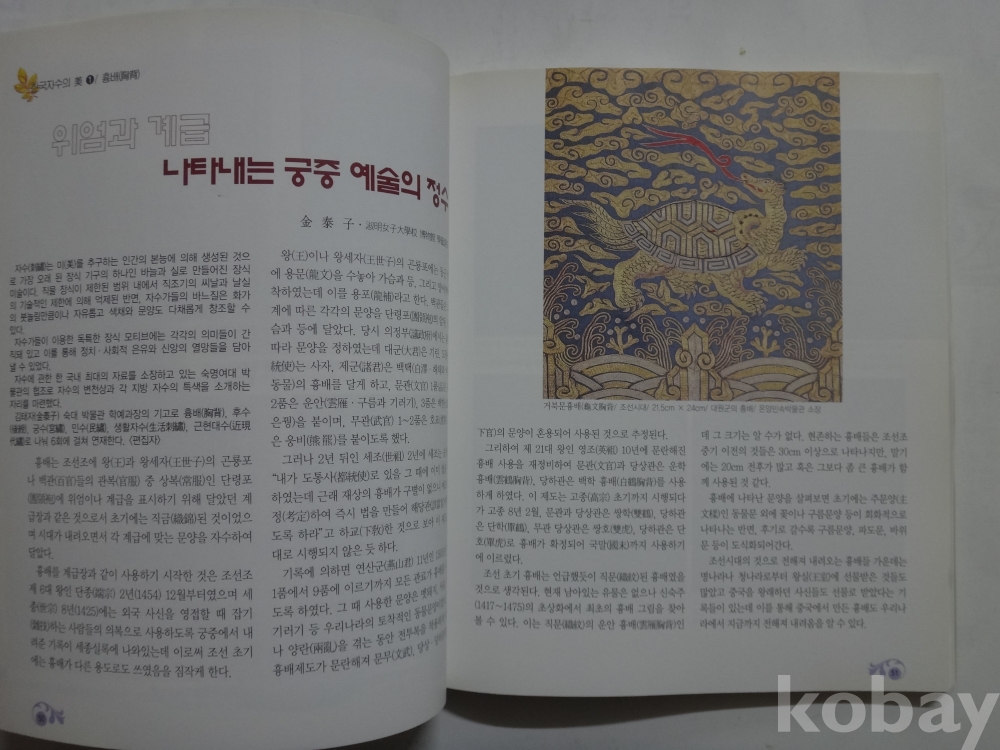 국자수의 美 ❶/ 흉배(胸背)
위엄과 계급
나타내는 궁중 예술의 정수
金 泰 子 · 淑明女子大學校
자수(刺繡)는 미(美)를 추구하는 인간의 본능에 의해 생성된 것으
로 가장 오래 된 장식 가구의 하나인 바늘과 실로 만들어진 장식
미술이다. 직물 장식이 제한된 범위 내에서 직조기의 씨날과 날실
의 기술적인 제한에 의해 억제된 반면, 자수가들의 바느질은 화가
의 붓놀림만큼이나 자유롭고 색채와 문양도 다채롭게 창조할 수
있다.
자수가들이 이용한 독특한 장식 모티브에는 각각의 의미들이 간
직돼 있고 이를 통해 정치·사회적 은유와 신앙의 열망들을 담아
낼 수 있었다.
자수에 관한 한 국내 최대의 자료를 소장하고 있는 숙명여대 박
물관의 협조로 자수의 변천상과 각 지방 자수의 특색을 소개하는
자리를 마련했다.
김태자(金泰子) 숙대 박물관 학예과장의 기고로 흉배(胸背), 후수
(後綬), 궁수(宮繡), 민수(民繡), 생활자수(生活刺繡), 근현대수(近現
代繡)로 나눠 6회에 걸쳐 연재한다. (편집자)
흉배는 조선조에 왕(王)과 왕세자(王世子)의 곤룡포
나 백관(百官)들의 관복(官服) 중 상복(常服)인 단령포
(團領袍)에 위엄이나 계급을 표시하기 위해 달았던 계
급장과 같은 것으로서 초기에는 직금(織錦)된 것이었으
며 시대가 내려오면서 각 계급에 맞는 문양을 자수하여
달았다.
흉배를 계급장과 같이 사용하기 시작한 것은 조선조
제 6대 왕인 단종(端宗) 2년(1454) 12월부터였으며 세
종(世宗) 8년(1425)에는 외국 사신을 영접할 때 잡기
(雜技)하는 사람들의 의복으로 사용하도록 궁중에서 내
려준 기록이 세종실록에 나와있는데 이로써 조선 초기
에는 흉배가 다른 용도로도 쓰였음을 짐작케 한다.
왕(王)이나 왕세자(王世子)의 곤룡포에는
에 용문(龍文)을 수놓아 가슴과 등, 그리고
착하였는데 이를 용포(龍補)라고 한다. 백관
계에 따른 각각의 문양을 단령포(團領袍)의
슴과 등에 달았다. 당시 의정부(議政府)에서는
따라 문양을 정하였는데 대군(大君)은 기린,
統使)는 사자, 제군(諸君)은 백택(白澤·
동물)의 흉배를 달게 하고, 문관(文官) 1품은
2품은 운안(雲雁·구름과 기러기), 3품은
은평)을 붙이며, 무관(武官) 1~2품은 호표
은 웅비(熊羆)를 붙이도록 했다.
그러나 2년 뒤인 세조(世祖) 2년에 세조는
"내가 도통사(都統使)로 있을 그 때에
하였는데 근래 재상의 흉배가 구별이 없으니
정(考定)하여 즉시 법을 만들어 해당관
도록 하라"고 하교(下敎)한 것으로 보아
대로 시행되지 않은 듯 하다.
기록에 의하면 연산군(燕山君) 11년
1품에서 9품에 이르기까지 모든 관료가
도록 하였다. 그 때 사용한 문양은
기러기 등 우리나라의 토착적인 동물문양이
나 양란(兩亂)을 겪는 동안 전투복을
흉배제도가 문란해져 문무(文武), 당상·
거북문흉배(龜文胸背)/ 조선시대/ 21.5cm × 24cm/ 대원군의 흉배/ 온양민속박물관 소장
下官)의 문양이 혼용되어 사용된 것으로 추정된다.
그리하여 제 21대 왕인 영조(英祖) 10년에 문란해진
흉배 사용을 재정비하여 문관(文官)과 당상관은 운학
(雲鶴胸背), 당하관은 백학 흉배(白鷳胸背)를 사용
하게 하였다. 이 제도는 고종(高宗) 초기까지 시행되다
가 고종 8년 2월, 문관과 당상관은 쌍학(雙鶴), 당하관
은 단학(單鶴), 무관 당상관은 쌍호(雙虎), 당하관은 단
호(單虎)로 흉배가 확정되어 국말(國末)까지 사용하기
에 이르렀다.
조선 초기 흉배는 언급했듯이 직문(織紋)된 흉배였을
것으로 생각된다. 현재 남아있는 유물은 없으나 신숙주
(1417~1475)의 초상화에서 최초의 흉배 그림을 찾아
볼 수 있다. 이는 직문(織紋)의 운안 흉배(雲雁胸背)인
데 그 크기는 알 수가 없다. 현존하는 흉배들은 조선조
중기 이전의 것들은 30cm 이상으로 나타나지만, 말기
에는 20cm 전후가 많고 혹은 그보다 좀 큰 흉배가 함
께 사용된 것 같다.
흉배에 나타난 문양을 살펴보면 초기에는 주문양(主
文樣)인 동물문 외에 꽃이나 구름문양 등이 회화적으로
나타나는 반면, 후기로 갈수록 구름문양, 파도문, 바위
문 등이 도식화되어간다.
조선시대의 것으로 전해져 내려오는 흉배들 가운데는
명나라나 청나라로부터 왕실(王室)에 선물받은 것들도
많았고 중국을 왕래하던 사신들도 선물로 받았다는 기
록들이 있는데 이를 통해 중국에서 만든 흉배도 우리나
라에서 지금까지 전해져 내려옴을 알 수 있다.
kobay